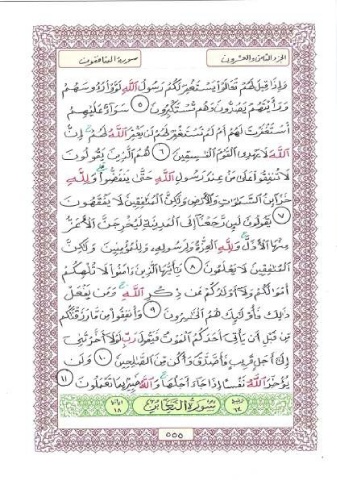 الجزء الثامن والعشرون
سورة المنافقون
وَإِذَا قِيلَ لَهُمْ تَعَالَوْا يَسْتَغْفِرْ لَكُمْ رَسُولُ اللَّهِ لَوَّوْا رُءُوسَهُمْ
وَرَأَيْتَهُمْ يَصُدُّونَ وَهُم مُّسْتَكْبِرُونَ ٥ سَوَاءٌ عَلَيْهِمْ
أَسْتَغْفَرْتَ لَهُمْ أَمْ لَمْ تَسْتَغْفِرْ لَهُمْ لَن يَغْفِرَ اللَّهُ لَهُمْ إِنَّ
اللَّهَ لَا يَهْدِي الْقَوْمَ الْفَاسِقِينَ ٦ هُمُ الَّذِينَ يَقُولُونَ
لَا تُنفِقُوا عَلَى مَنْ عِندَ رَسُولِ اللَّهِ حَتَّى يَنفَضُّوا وَلِلَّهِ
خَزَائِنُ السَّمَاوَاتِ وَالْأَرْضِ وَلَكِنَّ الْمُنَافِقِينَ لَا يَفْقَهُونَ
٧ يَقُولُونَ لَئِن رَّجَعْنَا إِلَى الْمَدِينَةِ لَيُخْرِجَنَّ الْأَعَزُّ
مِنْهَا الْأَذَلَّ وَلِلَّهِ الْعِزَّةُ وَلِرَسُولِهِ وَلِلْمُؤْمِنِينَ وَلَكِنَّ
الْمُنَافِقِينَ لَا يَعْلَمُونَ ٨ يَا أَيُّهَا الَّذِينَ آمَنُوا لَا تُلْهِكُمْ
أَمْوَالُكُمْ وَلَا أَوْلَادُكُمْ عَن ذِكْرِ اللَّهِ وَمَن يَفْعَلْ
ذَلِكَ فَأُولَئِكَ هُمُ الْخَاسِرُونَ ٩ وَأَنفِقُوا مِن مَّا رَزَقْنَاكُم
مِّن قَبْلِ أَن يَأْتِيَ أَحَدَكُمُ الْمَوْتُ فَيَقُولَ رَبِّ لَوْلَا أَخَّرْتَنِي
إِلَى أَجَلٍ قَرِيبٍ فَأَصَّدَّقَ وَأَكُن مِّنَ الصَّالِحِينَ ١٠ وَلَن
يُؤَخِّرَ اللَّهُ نَفْسًا إِذَا جَاءَ أَجَلُهَا وَاللَّهُ خَبِيرٌ بِمَا تَعْمَلُونَ ١١
سورة التغابن
٦٤
١٨
٥٥٥